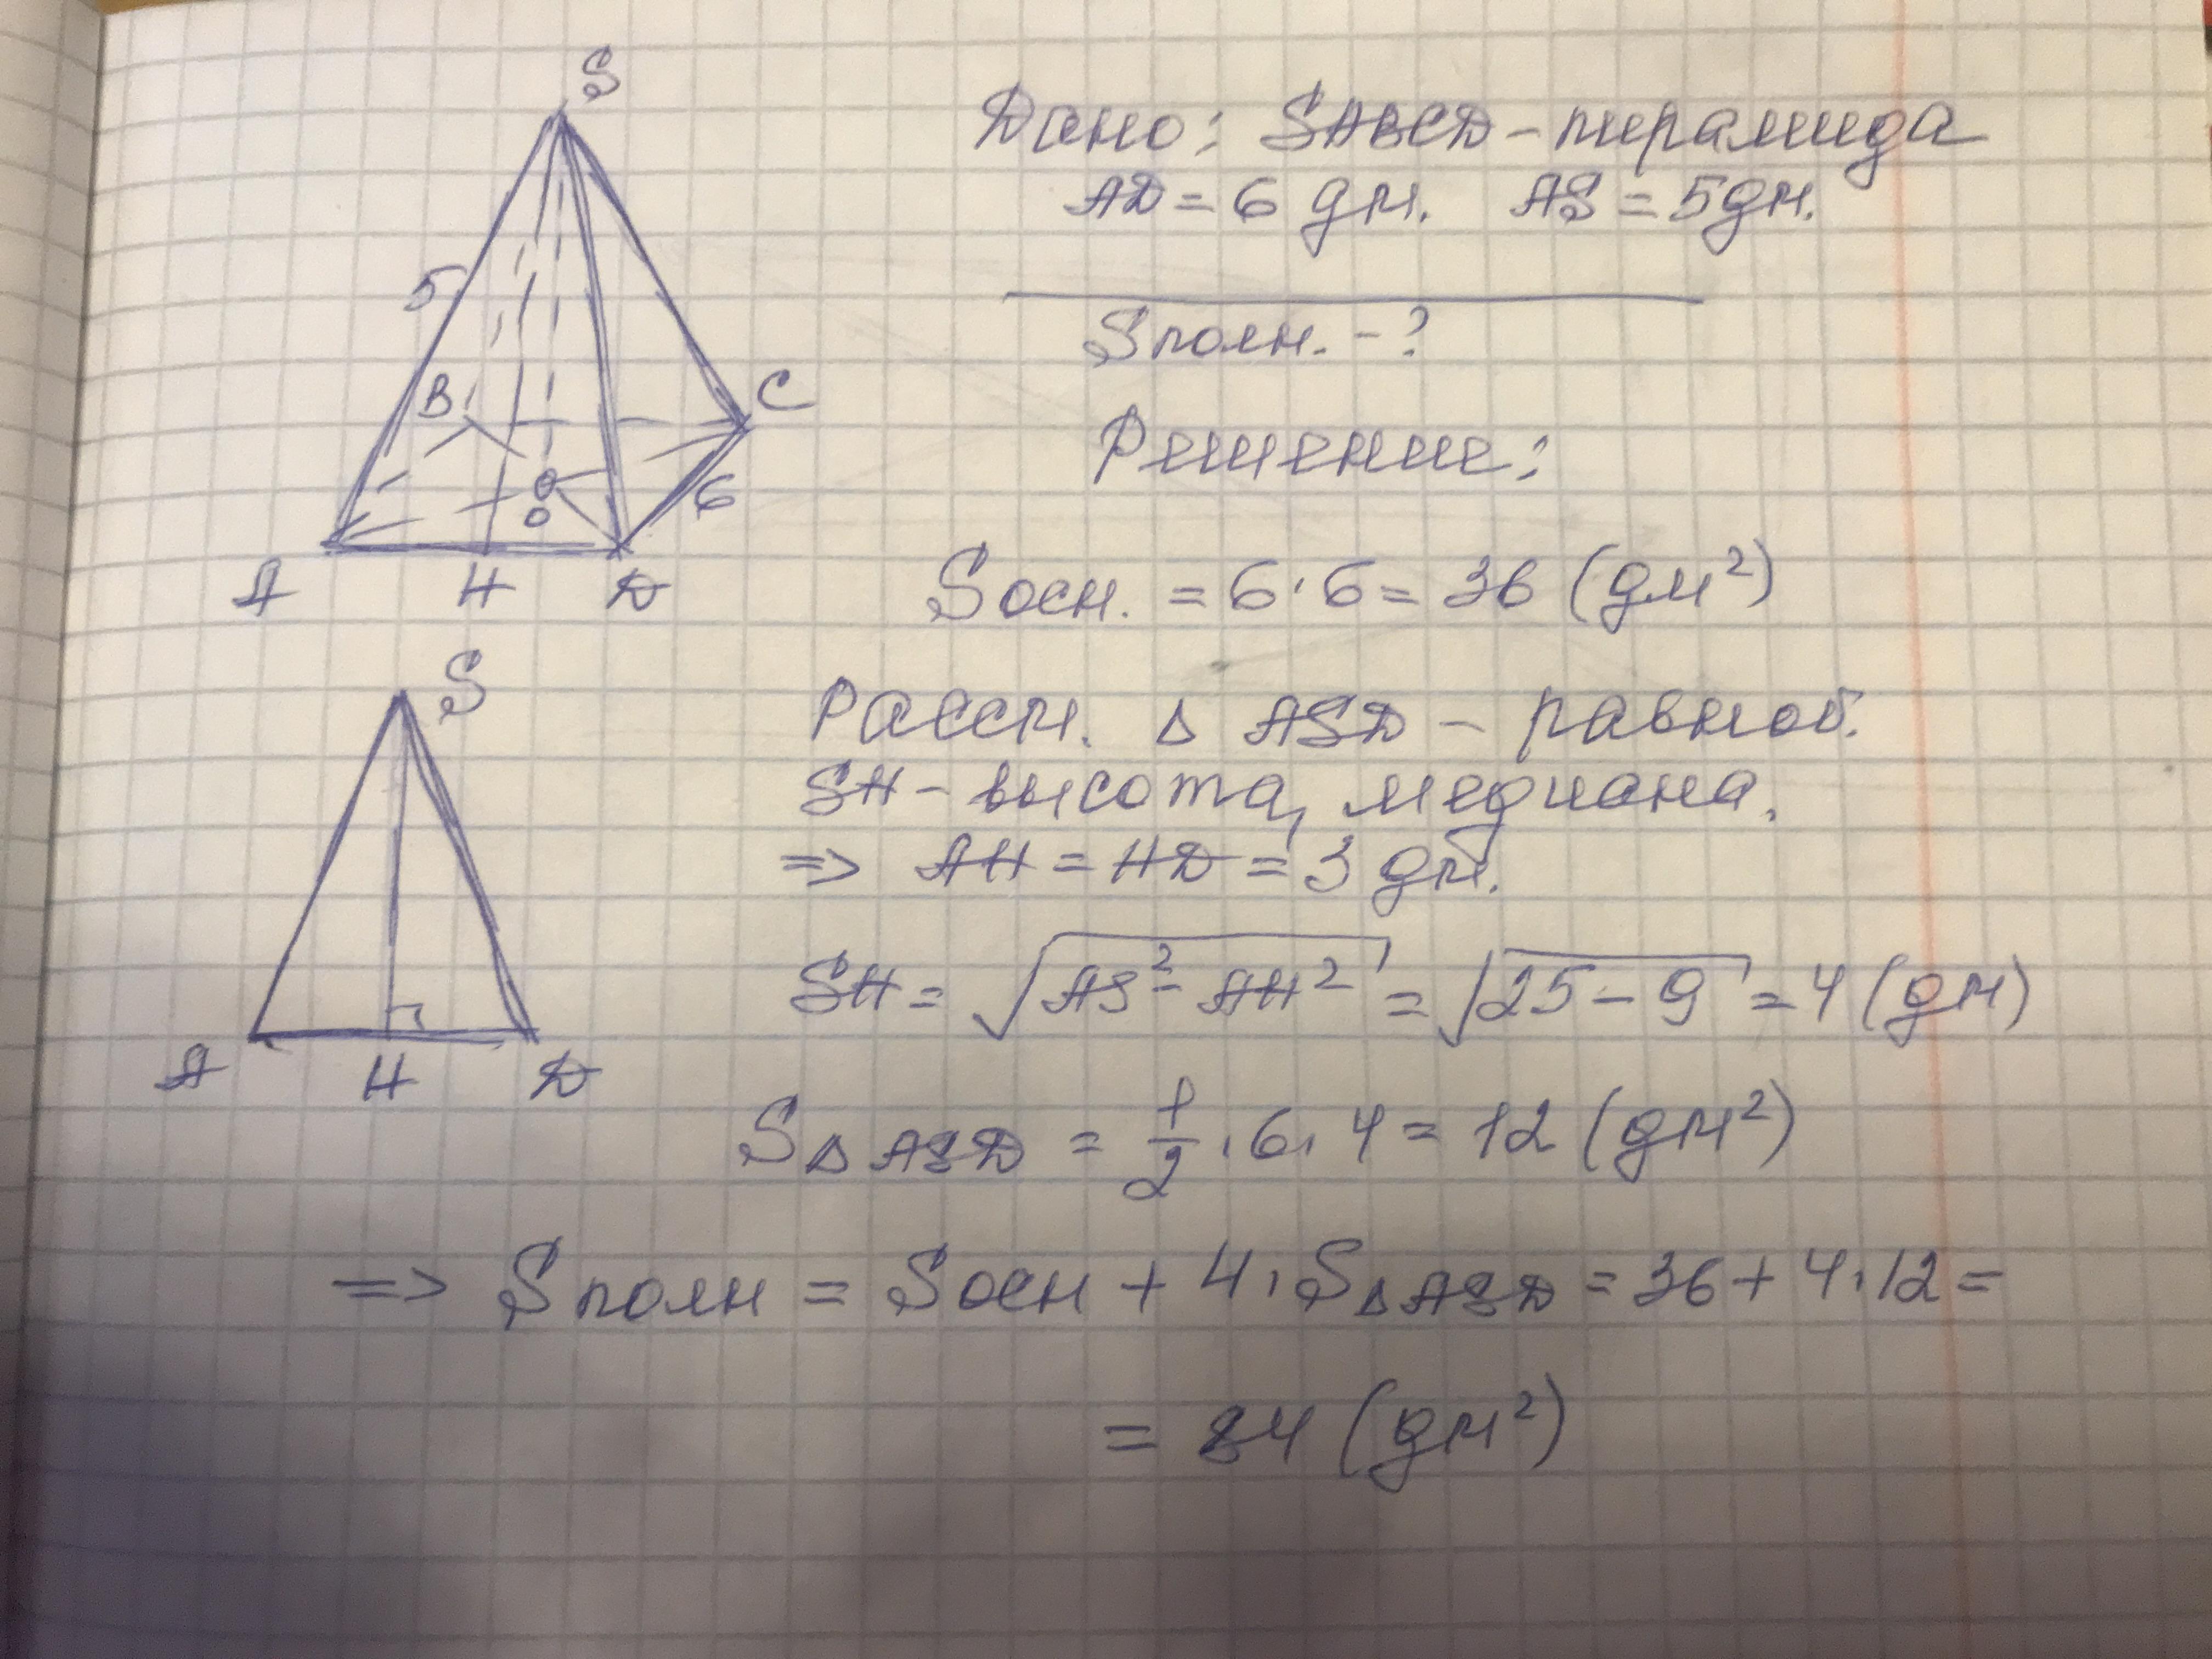 S
5
B
C
6
O
A
H
D
Дано: SABCD - пирамида
AD = 6 дм. AS = 5дм.
Sполн. - ?
Решение:
Sосн. = 6·6 = 36 (дм²)
S
A
H
D
Рассм. Δ ASD - равноб.
SH - высота, медиана.
=> AH = HD = 3 дм.
SH = √AS² - AH² = √25 - 9 = 4 (дм)
SΔ ASD = 1/2 · 6 · 4 = 12 (дм²)
=> Sполн = Sосн + 4 · SΔ ASD = 36 + 4 · 12 =
= 84 (дм²)